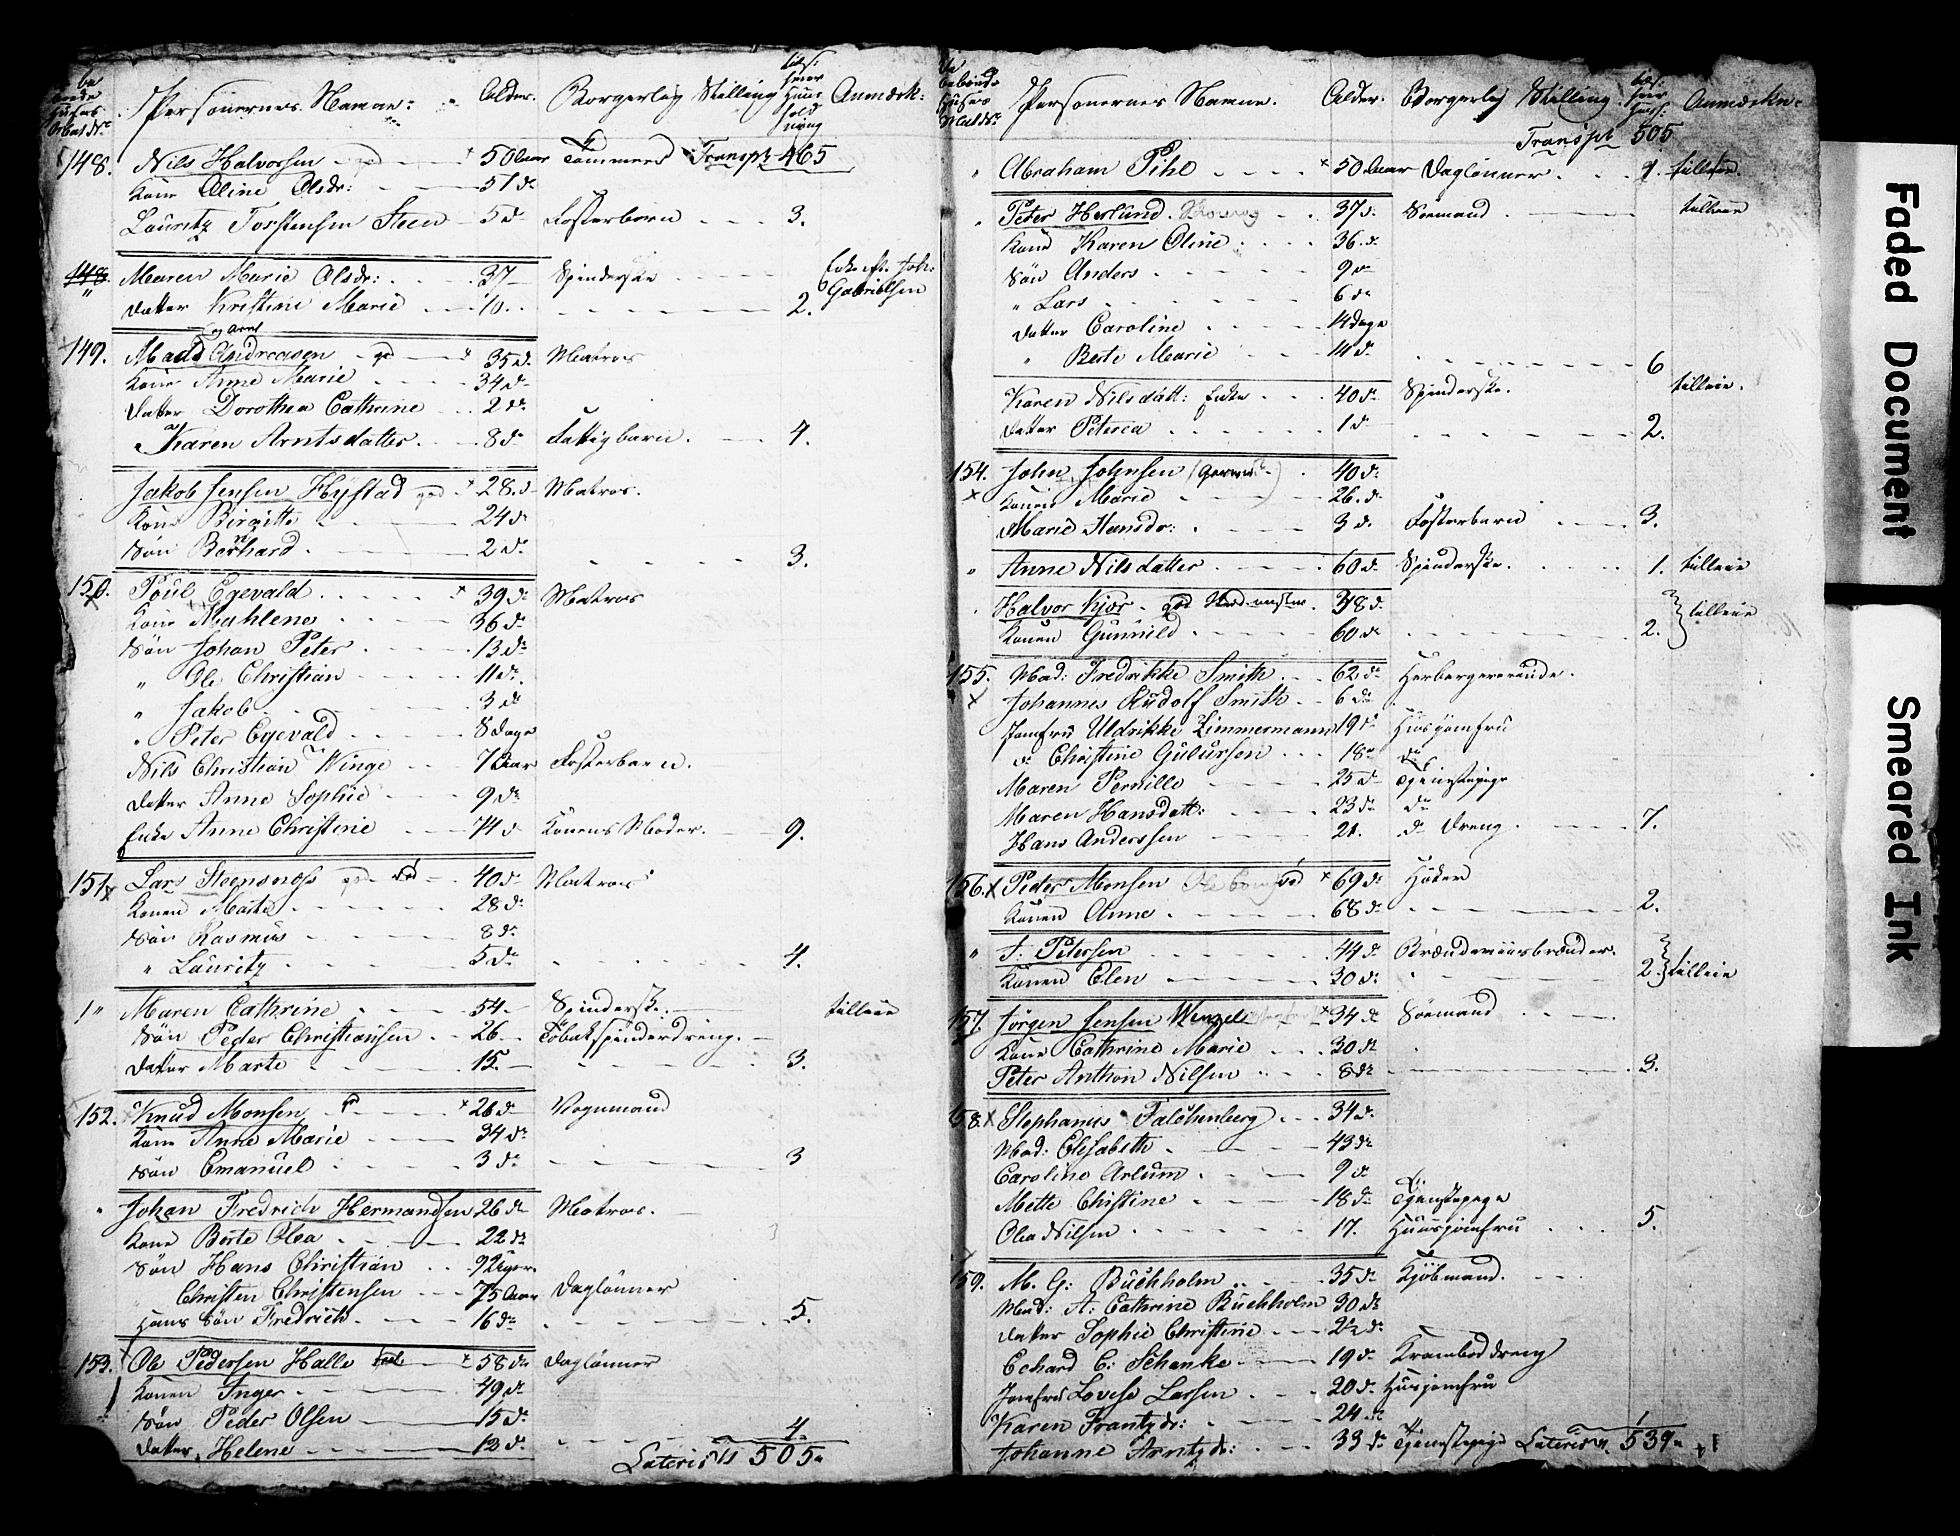 Personernes Nawne: Alder. Borgerlig Stilling Anmærk:
148. Nils Halvorsen 50 Aar Tømmerm Transpt 465
Kone Oline Olsdr: 51 do
Lauritz Torstensen Steen 5 do Fosterbarn 3.
148. Maren Marie Olsdr: 37 Spinderske Enke eft. Joh: Gabrielsen
Datter Kristine Marie 10 2.
149. Mads Andreasen 35 do Matros
Kone Anne Marie 34 do
Datter Dorothea Cathrine 2 do
" Karen Arntsdatter 8 do Fattigbarn. 4.
Jakob Jensen Hystad 28 do Matros.
Kone Birgitte 24 do
Søn Bernhard 2 do 3.
150. Poul Egevald 39 do Matros
Kone Mahlene 36 do
Søn Johan Peter 13 do
" Ole Christian 11 do
" Jakob 3 do
" Peter Egevald 8 Dage
Nils Christian Winge 7 Aar Fosterbarn.
Datter Anne Sophie 9 do
Enke Anne Christine 74 do Konens Moder. 9.
151. Lars Steensnoss 40 do Matros
Konen Marte 28 do
Søn Rasmus 8 do
" Lauritz 5 do 4.
" Maren Cathrine 54 Spindersk: tilleie
Søn Peder Christiansen 26 Tobakspinderdreng.
Datter Marte 15 3.
152. Knud Monsen 26 do Vognmand
Kone Anne Marie 34 do
Søn Emanuel 3 do 3
" Johan Fredrich Hermandsen 26 do Matros.
Kone Berte Olea 22 do
Søn Hans Christian 9 Uger
Christen Christensen 75 Aar Daglønner
Hans Søn Fredrich 16 do 5.
153. Ole Pedersen Halle 58 do Daglønner
Konen Inger 49 do
Søn Peder Olsen 15 do
Datter Helene 13 do 4.
Lateris 505
Personernes Nawne. Alder. Borgerlig Stilling. Anmærkn:
Transpt 505
" Abraham Pihl 50 Aar Daglønner 1. tilleie.
" Peter Herlund 37 do Sømand tilleie
Kone Karen Oline 36 do
Søn Anders 9 do
" Lars 6 do
Datter Caroline 14 Dage
" Berte Marie 14 do 6
Karen Nilsdatt: Enke 40 do Spinderske. tilleie.
Datter Peterea 1 do 2.
154. John Johnsen 40 do
Konen Marie 26 do
Marie Hansdr: 3 do Fosterbarn 3.
" Anne Nilsdatter 60 do Spinderske. 1. tilleie
Halvor Kjær 38 do
Konen Gunnild 60 do 2. tilleie
155. Mad: Fredrikke Smith 62 do Herbergererende.
Johannes Rudolf Smith 6 do
Jomfru Uldrikke Zimmermann 19 do Husjomfru
do Christine Gulursen 18 do do
Maren Pernille 25 do Tjenestepige
Maren Hansdatt: 23 do do
Hans Anderssen 21. do Dreng 7.
156. Peder Monsen 69 do Høker
Konen Anne 68 do 2.
" J: Petersen 44 do Brændeviinsbrænder.
Konen Elen 30 do 2. tilleie
157. Jørgen Jensen Wenzel 34 do Sømand
Kone Cathrine Marie 30 do
Peter Anthon Nilsen 8 do 3.
158. Stephanus Falchenberg 34 do
Mad: Elisabeth 43 do
Caroline Arlum 9 do
Mette Christine 18 do Tjenestepige
Olea Nilsen 17. Huusjomfru 5.
159. M. G: Buchholm 35 do Kjøbmand.
Mad: A: Cathrine Buchholm 30 do
Datter Sophie Christine 2½ do
Echard C: Schanke 19 do Kramboddreng
Jomfru Lovise Larsen 20 do Husjomfru
Karen Frantzdr: 24 do
Johanne Arntzdr: 33 do Tjenestepige Lateris 539
Faded Document
Smeared Ink